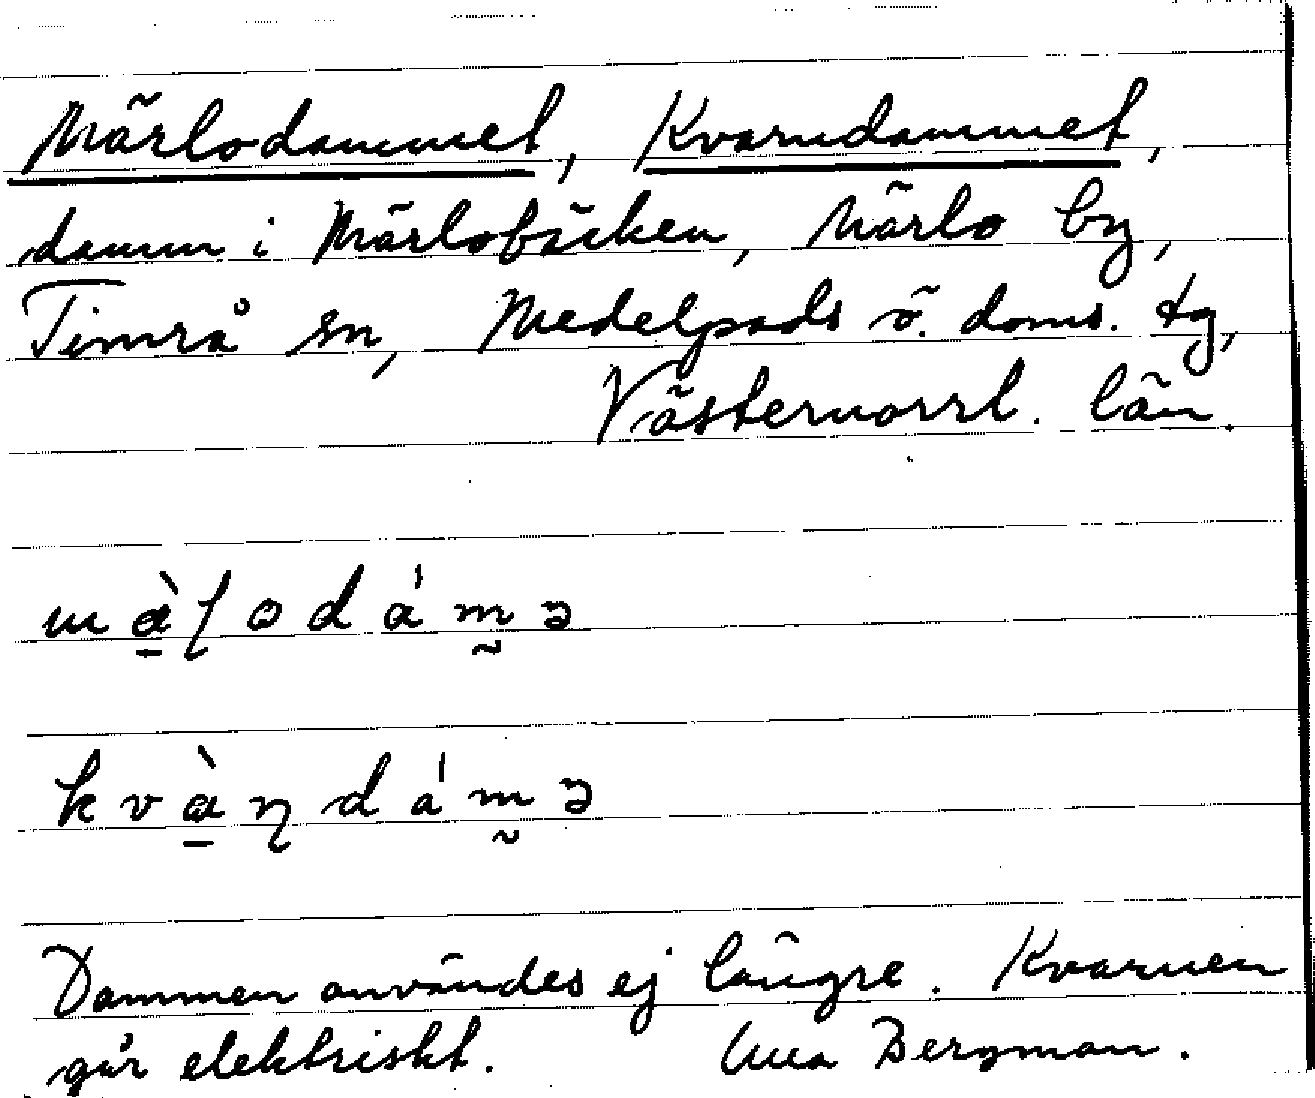 Märlodammet, Kvarndammet,
damm i Märlobäcken, Märlo by,
Timrå sn, Medelpads ö. doms. tg,
Västernorrl. län.
Dammen användes ej längre. Kvarnen
går elektriskt. Bergman.